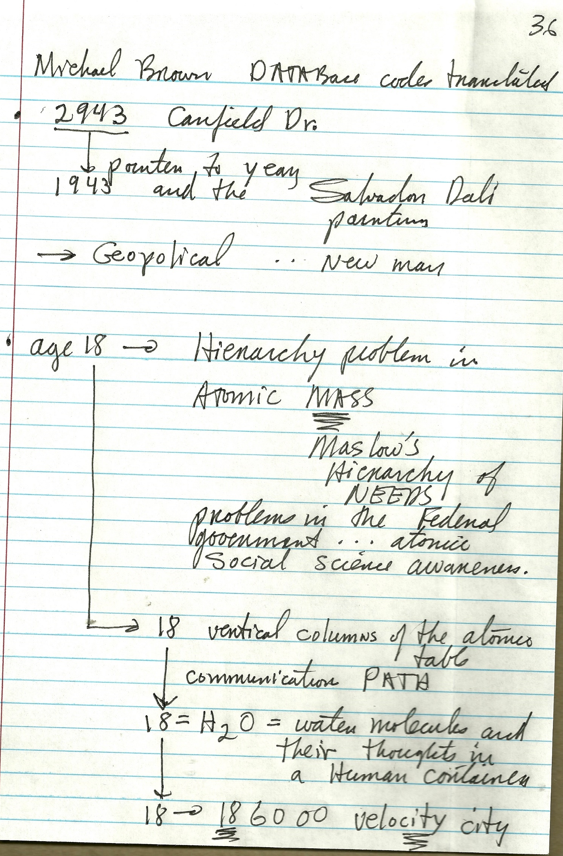 36
Michael Brown DATABase codes translated
• 2943 Canfield Dr.
pointer to year
1943 and the Salvador Dali
painting
→ Geopolical ... New man
• age 18 → Hierarchy problem in
Atomic MASS
Maslow's
Hierarchy of
NEEDS
problems in the Federal
government ... atomic
Social science awareness.
18 vertical columns of the atomic
table
communication PATH
18 = H2O = water molecules and
their thoughts in
a Human container
18 → 186000 velocity city